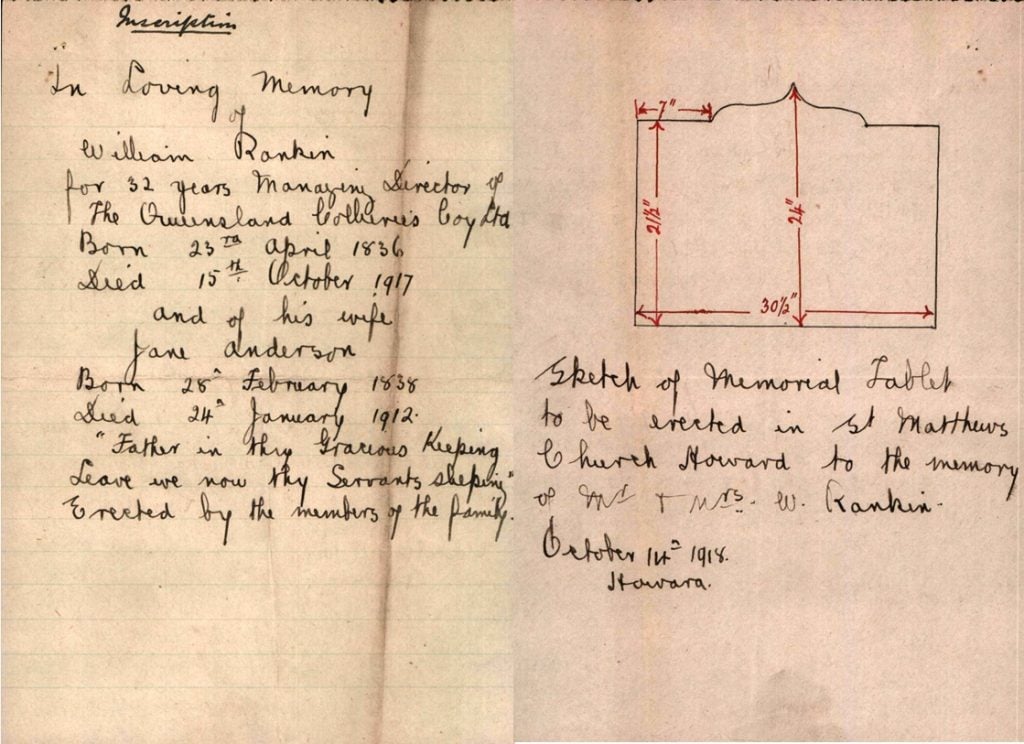 Inscription
In Loving Memory
of
William Rankin
for 32 years Managing Director of
The Queensland Collieries Coy Ltd
Born 23rd April 1836
Died 15th October 1917
and of his wife
Jane Anderson
Born 28th February 1838
Died 24th January 1912.
"Father in thy Gracious Keeping
Leave we now thy Servants sleeping"
Erected by the members of the family.
7"
21½"
24"
30½"
Sketch of Memorial Tablet
to be erected in St Matthews
Church Howard to the memory
of Mr & Mrs. W. Rankin.
October 14th 1918.
Howard.